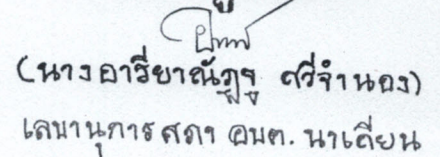 (นางอารียาณัฏฐ ศรีจำนอง)
เลขานุการสภา อบต. นาเลียน